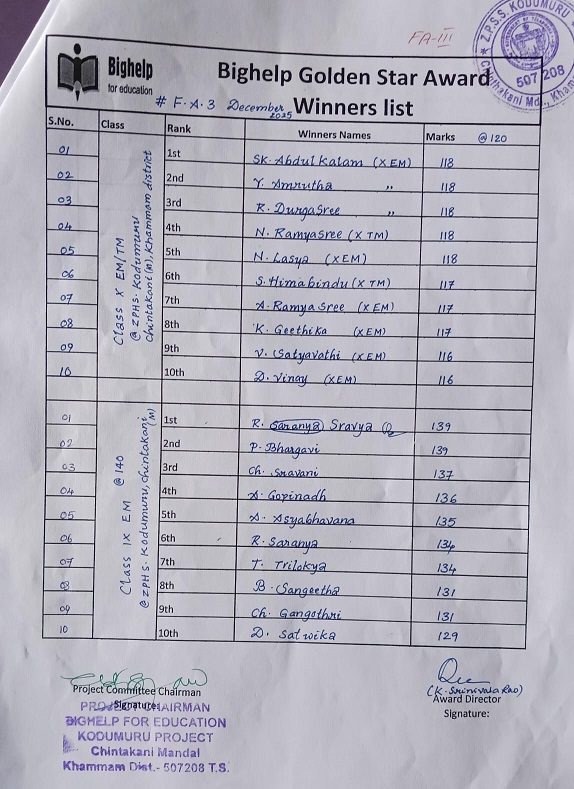 FA-III
Z.P.S.S. KODUMURU
507 208
Bighelp
for education
Bighelp Golden Star Award
# F.A.3 December 2025 Winners list
S.No. Class Rank Winners Names Marks @ 120
Class X EM/TM
@ ZPHS. Kodumuru
Chintakani (M), Khammam district
01 1st SK. Abdul Kalam (X EM) 118
02 2nd Y. Amrutha ,, 118
03 3rd R. DurgaSree ,, 118
04 4th N. RamyaSree (X TM) 118
05 5th N. Lasya (XEM) 118
06 6th S. Himabindu (X TM) 117
07 7th A. Ramya Sree (X EM) 117
08 8th K. Geethika (XEM) 117
09 9th V. Satyavathi (X EM) 116
10 10th D. Vinay (XEM) 116
Class IX EM @ 140
@ ZPHS. Kodumuru, chintakani (M)
01 1st R. Saranya Sravya 139
02 2nd P. Bhargavi 139
03 3rd Ch. Sravani 137
04 4th A. Gopinadh 136
05 5th A. Asyabhavana 135
06 6th R. Saranya 134
07 7th T. Trilokya 134
08 8th B. Sangeetha 131
09 9th Ch. Gangothri 131
10 10th D. Satwika 129
Project Committee Chairman
Signature:
PROJECT CHAIRMAN
BIGHELP FOR EDUCATION
KODUMURU PROJECT
Chintakani Mandal
Khammam Dist.- 507208 T.S.
(K. Srinivasa Rao)
Award Director
Signature: